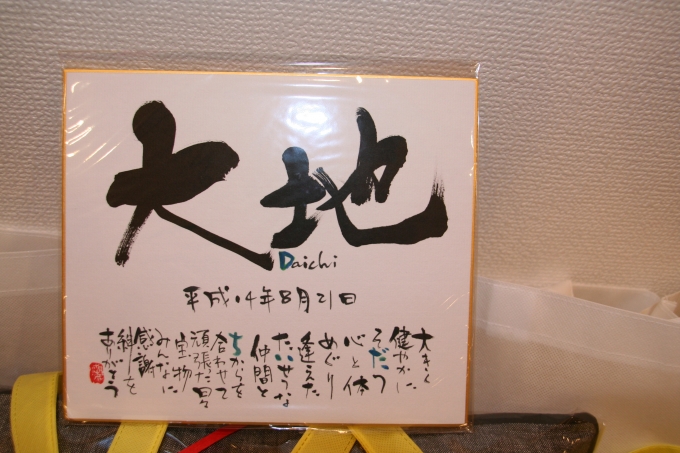 大地
Daichi
平成14年8月21日
大きく
健やかに
そだつ
心と体
めぐり
逢えた
たいせつな
仲間と
ちからを
合わせて
頑張った日々
宝物
みんなに
感謝
絆を
ありがとう